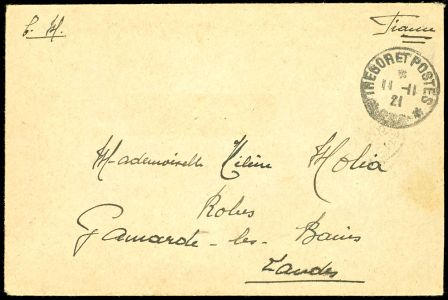 F. M.
TRESOR ET POSTES
*
11-11
21
Mademoiselle Hélène Molia
Robes
Gamarde-les-Bains
Landes